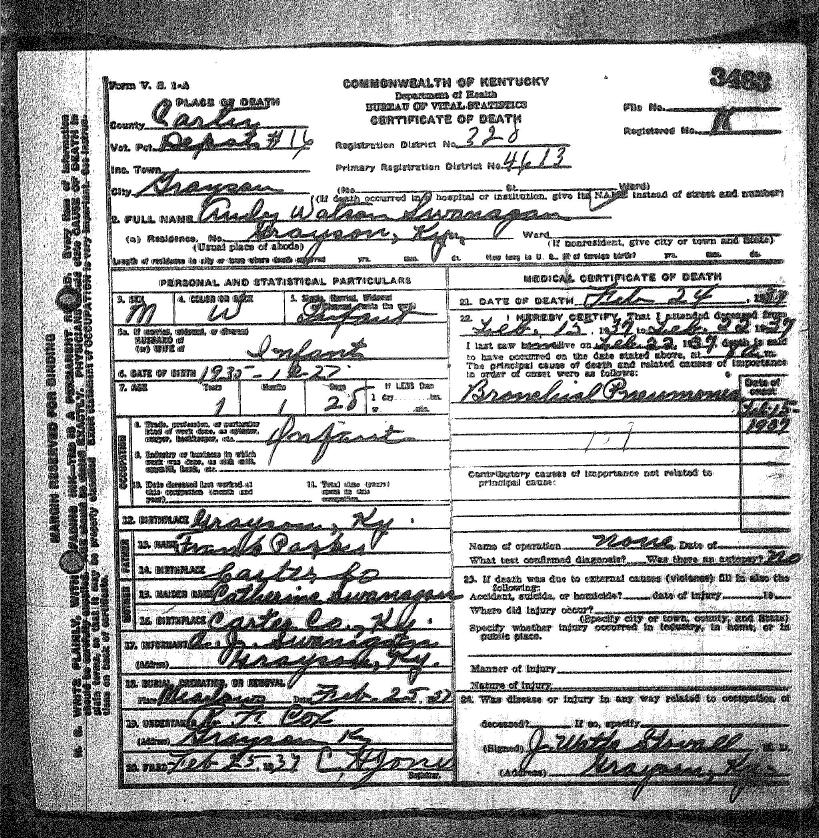 Form V. S. 1-A
COMMONWEALTH OF KENTUCKY
Department of Health
BUREAU OF VITAL STATISTICS
CERTIFICATE OF DEATH
3483
File No.
Registered No.
PLACE OF DEATH
County Carter
Vot. Pct. Depot #16
Inc. Town
City Grayson
Registration District No. 320
Primary Registration District No. 4613
(No. St. Ward)
(If death occurred in hospital or institution, give its NAME instead of street and number)
2. FULL NAME Watson Swanagan
(a) Residence, No. Grayson, Ky. Ward.
(Usual place of abode) (If nonresident, give city or town and State)
Length of residence in city or town where death occurred yrs. mos. ds. How long in U. S., if of foreign birth? yrs. mos. ds.
PERSONAL AND STATISTICAL PARTICULARS
3. SEX M
4. COLOR OR RACE W
5. Single, Married, Widowed Infant
5a. If married, widowed, or divorced
HUSBAND of
(or) WIFE of Infant
6. DATE OF BIRTH 1935-
7. AGE Years 1 Months 1 Days 28 If LESS than
1 day hrs.
or min.
OCCUPATION
8. Trade, profession, or particular kind of work done, as spinner, sawyer, bookkeeper, etc. Infant
9. Industry or business in which work was done, as silk mill, sawmill, bank, etc.
10. Date deceased last worked at this occupation (month and year)
11. Total time (years) spent in this occupation
12. BIRTHPLACE Grayson, Ky.
FATHER
13. NAME Frank
14. BIRTHPLACE Carter Co
15. MAIDEN NAME Catherine Swanagan
16. BIRTHPLACE Carter Co., Ky.
17. INFORMANT A. J. Swanagan
(Address) Grayson, Ky.
18. BURIAL, CREMATION, OR REMOVAL
Place Date Feb. 25, 1937
19. UNDERTAKER Cox
(Address) Grayson Ky
20. FILED Feb 25, 1937 C H Jones
Registrar.
MEDICAL CERTIFICATE OF DEATH
21. DATE OF DEATH Feb 24, 1937
22. I HEREBY CERTIFY, That I attended deceased from
Feb. 13, 1937 to Feb. 22 1937
I last saw him alive on Feb. 22, 1937 death is said
to have occurred on the date stated above, at m.
The principal cause of death and related causes of importance
in order of onset were as follows:
Date of onset
Bronchial Pneumonia Feb 15-
1937
Contributory causes of importance not related to
principal cause:
Name of operation none Date of
What test confirmed diagnosis? Was there an autopsy? No
23. If death was due to external causes (violence) fill in also the
following:
Accident, suicide, or homicide? date of injury 19
Where did injury occur?
(Specify city or town, county, and State)
Specify whether injury occurred in industry, in home, or in
public place.
Manner of injury
Nature of injury
24. Was disease or injury in any way related to occupation of
deceased? If so, specify
(Signed) J. Watts Stovall M. D.
(Address) Grayson, Ky.
MARGIN RESERVED FOR BINDING